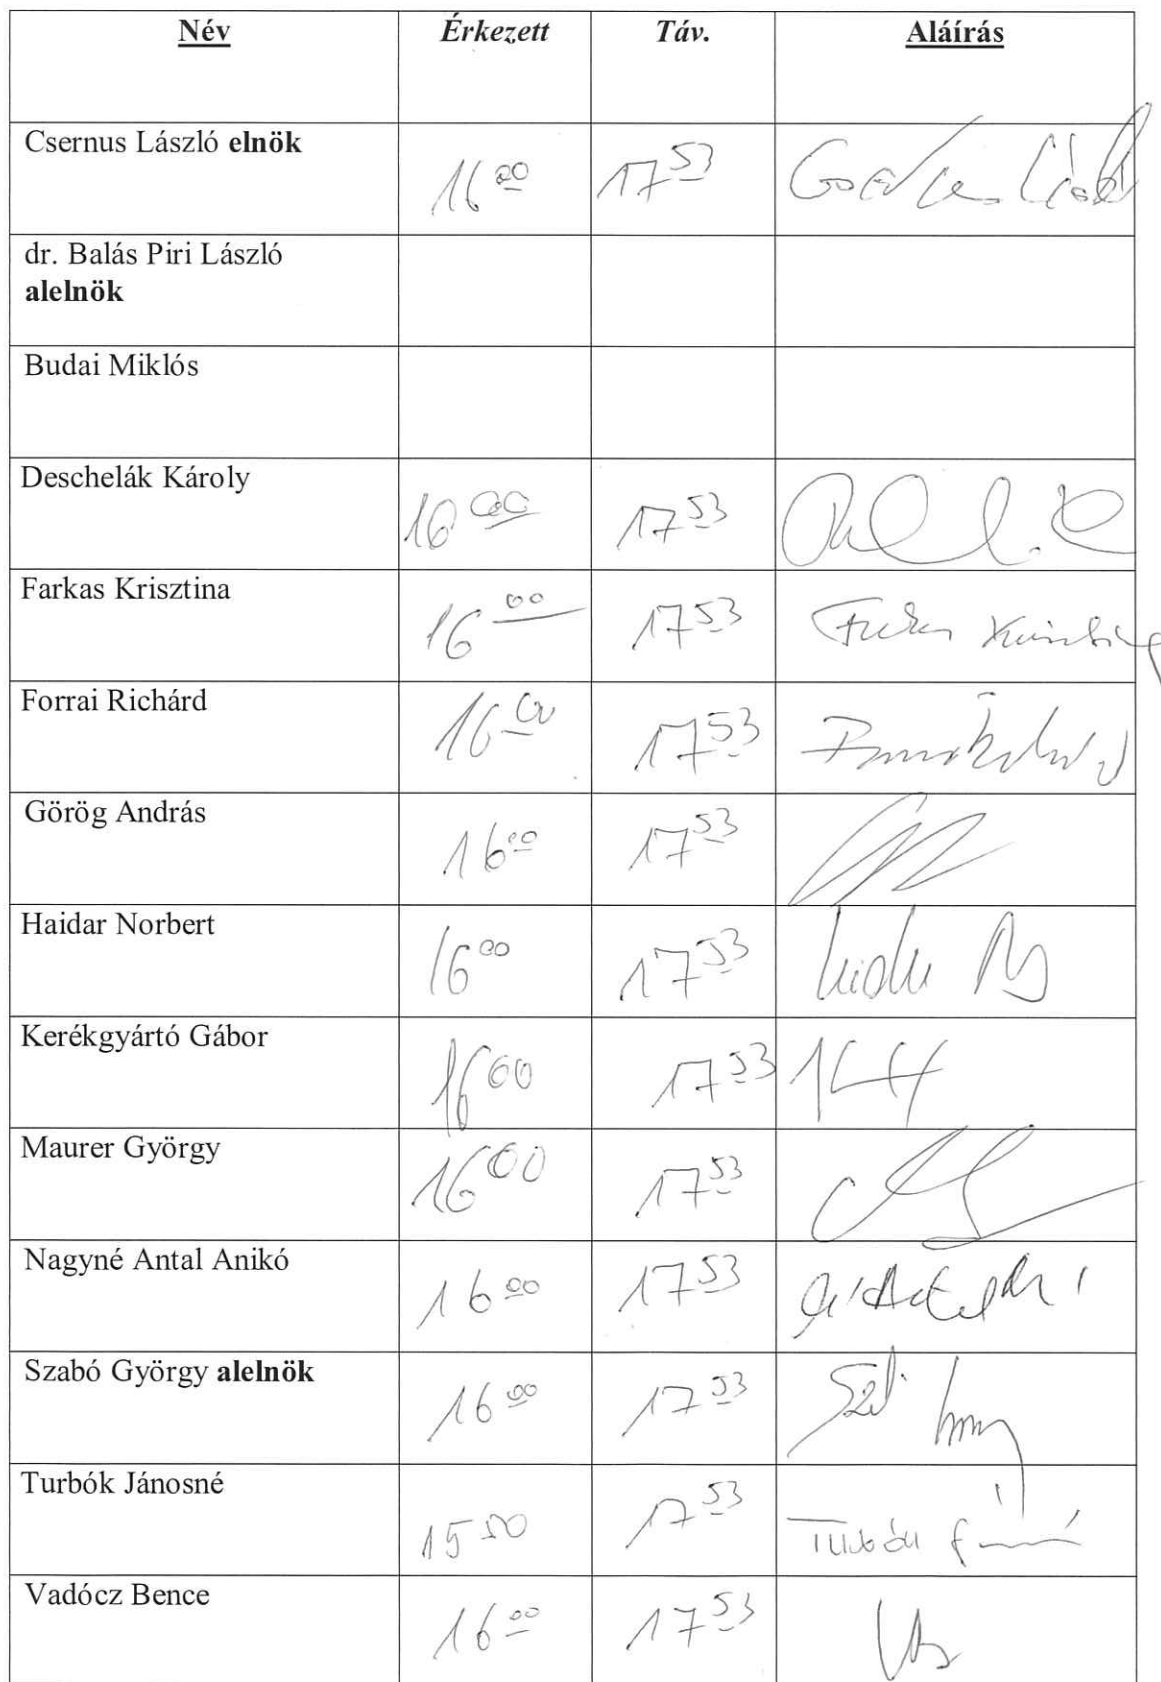 Név Érkezett Táv. Aláírás
Csernus László elnök
16 00 17 53
dr. Balás Piri László
alelnök
Budai Miklós
Deschelák Károly
16 00 17 53
Farkas Krisztina
16 00 17 53 Farkas Krisztina
Forrai Richárd
16 00 17 53
Görög András
16 00 17 53
Haidar Norbert
16 00 17 53
Kerékgyártó Gábor
16 00 17 53
Maurer György
16 00 17 53
Nagyné Antal Anikó
16 00 17 53
Szabó György alelnök
16 00 17 53
Turbók Jánosné
15 50 17 53
Vadócz Bence
16 00 17 53